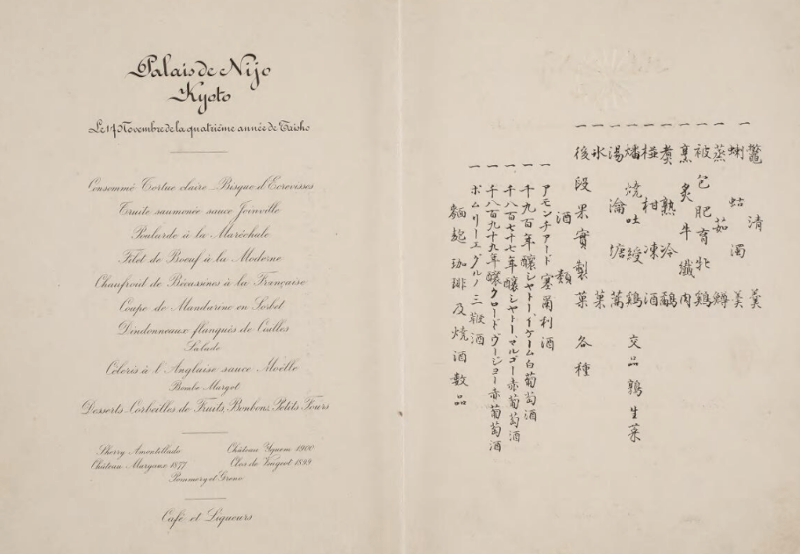 Palais de Nijo
Kyoto
Le 17 Novembre de la quatrième année de Taisho
Consommé Tortue claire - Bisque d'Ecrevisses
Truite saumonée sauce Joinville
Poularde à la Maréchale
Filet de Boeuf à la Moderne
Chaufroid de Bécassines à la Française
Coupe de Mandarine en Sorbet
Dindonneaux flanqués de Cailles
Salade
Céleris à l'Anglaise sauce Moëlle
Bombe Margot
Desserts. Corbeilles de Fruits, Bonbons, Petits Fours
Sherry Amontillado
Château Yquem 1900
Château-Margaux 1877
Clos de Vougeot 1899
Pommery et Greno
Café et Liqueurs
一 鼈清羹
一 蝲蛄濁羹
一 蒸茹鱒
一 被包肥育牝鶏
一 烹炙牛纎肉
一 煑熟冷鷸
一 橙柑凍酒
一 燔焼吐綬鶏 交品鶉生菜
一 湯瀹塘蒿
一 氷菓
一 後段果實製菓各種
酒類
一 アモンチアード塞爾利酒
一 千九百年醸シャトーイケーム白葡萄酒
一 千八百七十七年醸シャトー、マルゴー赤葡萄酒
一 千八百九十九年醸クロードヴージョー赤葡萄酒
一 ポムリーエグルノ三鞭酒
麺麭珈琲及焼酒数品